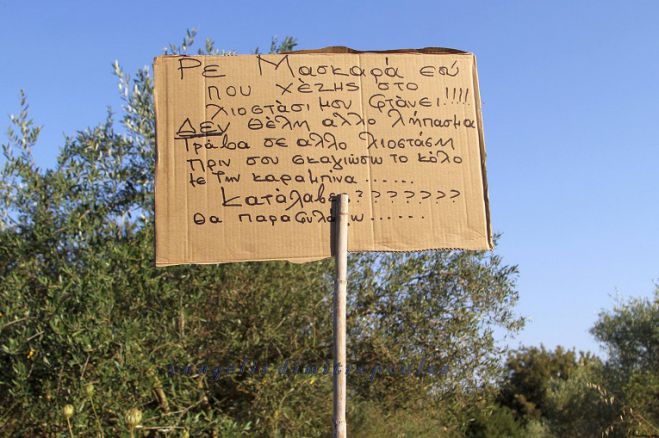 Ρε Μασκαρά εσύ
που χέζης στο
λιοστάσι μου φτάνει!!!!
ΔΕΝ θέλη άλλο λήπασμα
Τράβα σε αλλο λιοστάση
πριν σου σκαγιώσω το κόλο
με την καραμπίνα ......
Κατάλαβες???????
θα παραφυλάω......